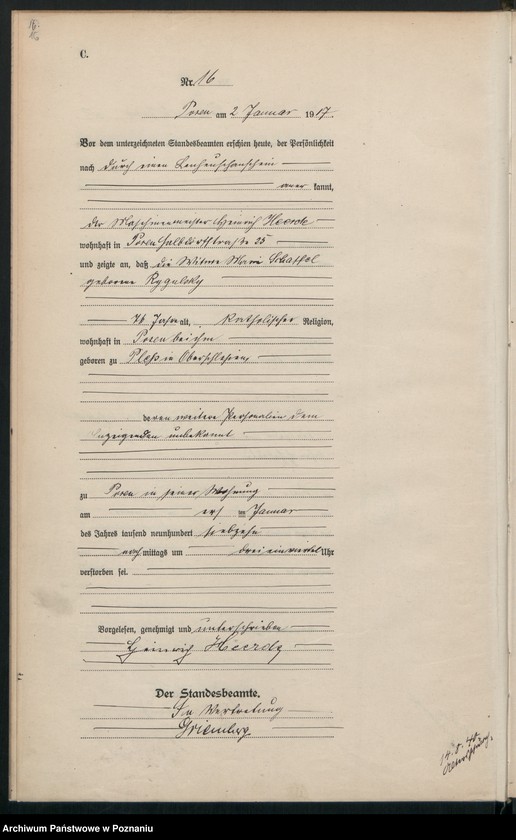 C.
Nr. 16
Posen am 2 Januar 1917.
Vor dem unterzeichneten Standesbeamten erschien heute, der Persönlichkeit
nach durch einen
aner kannt,
der Maschinenmeister Heinrich Heerde
wohnhaft in Posen Halbdorfstraße 25
und zeigte an, daß die Witwe Marie
geborene Rygulsky
76 Jahre alt, katholischer Religion,
wohnhaft in Posen bei ihm
geboren zu Pleß in Oberschlesien
deren weitere Personalien dem
Anzeigenden unbekannt
zu Posen in seiner Wohnung
am ersten Januar
des Jahres tausend neunhundert siebzehn
nachmittags um drei einviertel Uhr
verstorben sei.
Vorgelesen, genehmigt und unterschrieben
Heinrich Heerde
Der Standesbeamte.
In Vertretung
Archiwum Państwowe w Poznaniu